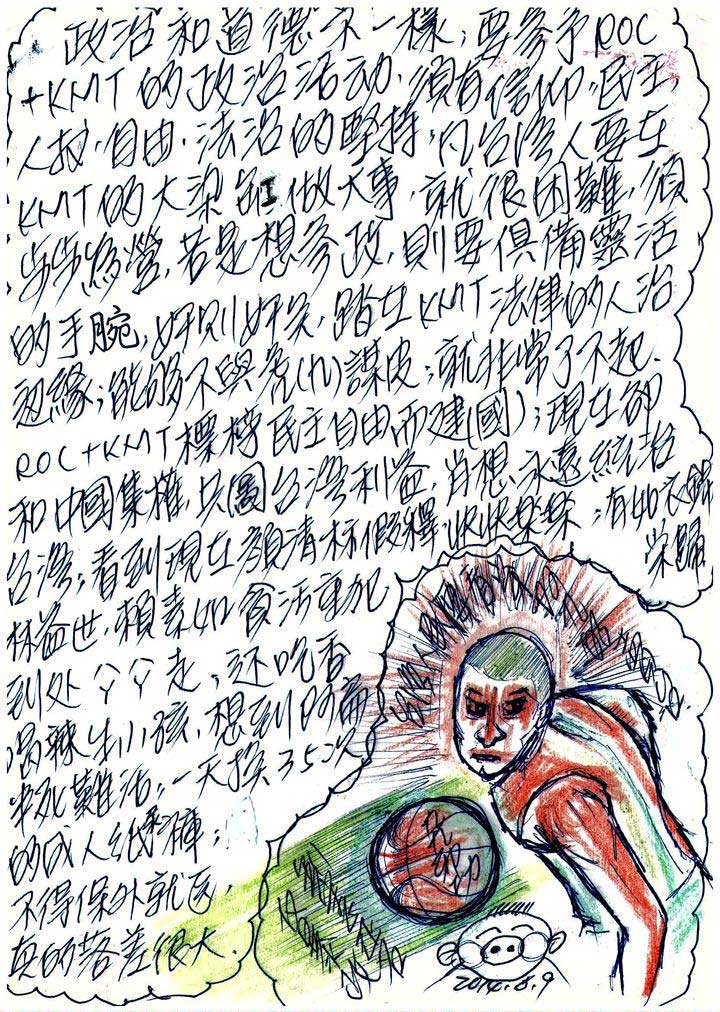 政治和道德不一樣,要參予ROC
+KMT的政治活动,須有信仰,民主,
人权,自由,法治的堅持,凡台湾人要在
KMT的大染缸做大事,就很困難,須
步步為營,若是想參政,則要俱備靈活
的手腕,好則好矣,踏在KMT法律的人治
边緣,能够不與虎(九)謀皮,就非常了不起.
ROC+KMT標榜民主自由而建(國),現在卻
和中國集權,共圖台灣利益,肖想永遠統治
台灣,看到現在顏清标假釋快快樂樂,有如衣錦
榮歸
林益世,賴素如貪污重犯
到处丫丫走,还吃香
喝辣生小孩,想到阿扁
求死難活,一天換35次
的成人纸尿褲,
不得保外就医,
真的落差很大.
2014.6.9